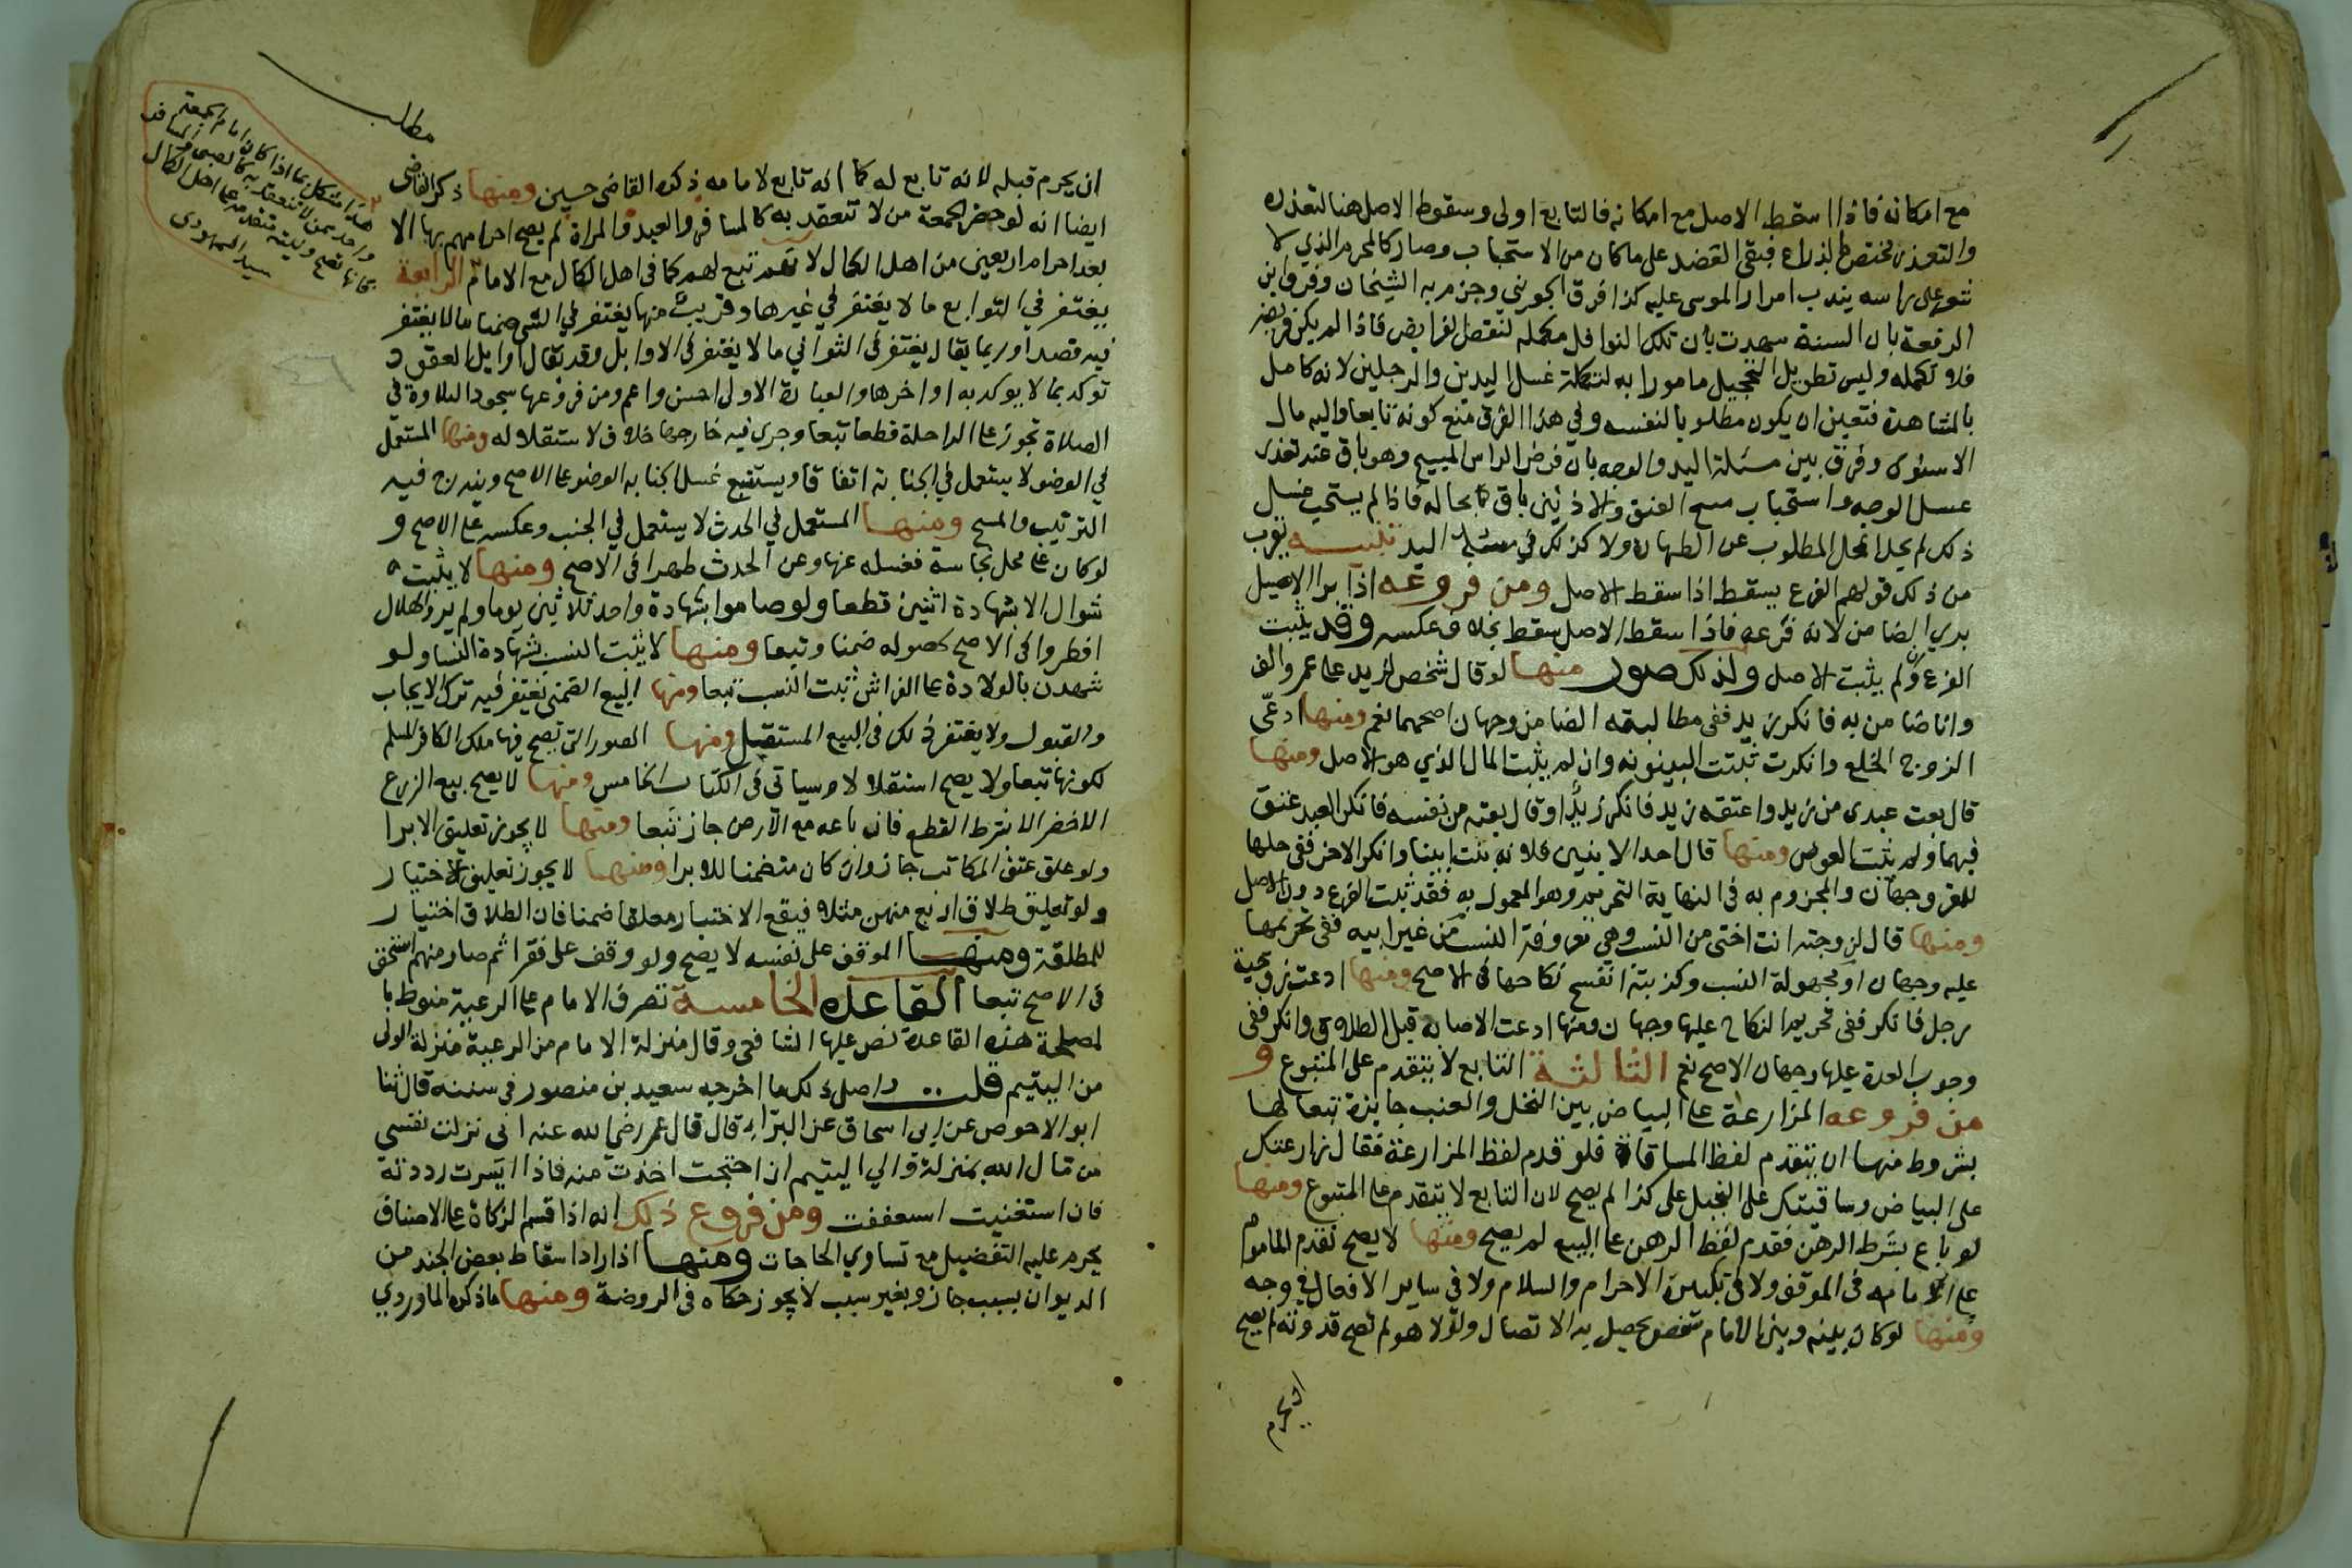 مع امكانه فاذا سقط الاصل مع امكانه فالتابع اولى وسقوط الاصل هنا لتعذره
والتعذر مختص بالذراع فبقى العضد على ما كان من الاستحباب وصار كالمحرم الذي لا
شعر على راسه يندب امرار الموسى عليه كذا فرق الجويني وجزم به الشيخان وفرق ابن
الرفعة بان السنة شهدت بان تلك النوافل مكمله لنقص الفرايض فاذا لم يكن فريضه
فلا تكمله وليس تطويل التحجيل مامورا به لتكملة غسل اليدين والرجلين لانه كامل
بالمشاهدة فتعين ان يكون مطلوبا لنفسه وفي هذا الفرق منع كونه تابعا واليه مال
الاسنوى وفرق بين مسئلة اليد والوجه بان فرض الراس المسح وهو باق عند تعذر
غسل الوجه واستحباب مسح العنق والاذنين باق بحاله فاذا لم يستحب غسل
ذلك لم يخل المحل المطلوب عن الطهارة ولا كذلك في مسئلة اليد تنبيه يقرب
من ذلك قولهم الفرع يسقط اذا سقط الاصل ومن فروعه اذا برا الاصيل
برى الضامن لانه فرعه فاذا سقط الاصل سقط بخلاف عكسه وقد يثبت
الفرع وان لم يثبت الاصل ولذلك صور منها لو قال شخص لزيد على عمرو الف
وانا ضامن به فانكر زيد ففى مطالبة الضامن وجهان اصحهما نعم ومنها ادعى
الزوج الخلع وانكرت ثبتت البينونه وان لم يثبت المال الذي هو الاصل ومنها
قال بعت عبدى من زيد واعتقه زيد فانكر زيد او قال بعته من نفسه فانكر العبد عتق
فيهما ولم يثبت العوض ومنها قال احد الابنين فلانه بنت ابينا وانكر الاخر ففى حلها
للمقر وجهان والمجزوم به فى النهاية التحريم وهو المعمول به فقد ثبت الفرع دون الاصل
ومنها قال لزوجته انت اختى من النسب وهي معروفة النسب من غير ابيه ففى تحريمها
عليه وجهان او مجهولة النسب وكذبته انفسخ نكاحها فى الاصح ومنها ادعت زوجية
رجل فانكر ففى تحريم النكاح عليها وجهان ومنها ادعت الاصابة قبل الطلاق وانكر ففى
وجوب العدة عليها وجهان الاصح نعم الثالثة التابع لا يتقدم على المتبوع و
من فروعه المزارعة على البياض بين النخل والعنب جايزة تبعا لها
بشروط منها ان يتقدم لفظ المساقاة فلو قدم لفظ المزارعة فقال زارعتك
على البياض وساقيتك على النخيل على كذا لم يصح لان التابع لا يتقدم على المتبوع ومنها
لو باع بشرط الرهن فقدم لفظ الرهن على البيع لم يصح ومنها لا يصح تقدم الماموم
على امامه فى الموقف ولا فى تكبيرة الاحرام والسلام ولا فى ساير الافعال في وجه
ومنها لو كان بينه وبين الامام شخص يحصل به الاتصال ولولا هو لم تصح قدوته لم يصح
ان يحرم
مطلب
هذا مشكل بما اذا كان امام الجمعة
واحد ممن لا تنعقد به كالصبى والمسافر
فانها تصح وليته متقدم على اهل الكمال
سيد السمهودى
ان يحرم قبله لانه تابع له كما انه تابع لامامه ذكره القاضى حسين ومنها ذكر القاضى
ايضا انه لو حضر الجمعة من لا تنعقد به كالمسافر والعبد والمراة لم يصح احرامهم بها الا
بعد احرام اربعين من اهل الكمال لانهم تبع لهم كما فى اهل الكمال مع الامام الرابعة
يغتفر في التوابع ما لا يغتفر في غيرها وقريب منها يغتفر في الشى ضمنا ما لا يغتفر
فيه قصدا وربما يقال يغتفر فى الثواني ما لا يغتفر فى الاوايل وقد يقال اوايل العقود
توكد بما لا يوكد به اواخرها والعبارة الاولى احسن واعم ومن فروعها سجود التلاوة فى
الصلاة تجوز على الراحلة قطعا تبعا وجرى فيه خارجها خلاف لاستقلاله ومنها المستعمل
في الوضو لا يستعمل في الجنابة اتفاقا ويستتبع غسل الجنابه الوضو على الاصح ويندرج فيه
الترتيب والمسح ومنها المستعمل في الحدث لا يستعمل في الجنب وعكسه على الاصح و
لو كان على محل نجاسة فغسله عنها وعن الحدث طهرا فى الاصح ومنها لا يثبت
شوال الا بشهادة اثنين قطعا ولو صاموا بشهادة واحد ثلاثين يوما ولم يروا الهلال
افطروا فى الاصح لحصوله ضمنا وتبعا ومنها لا يثبت النسب بشهادة النسا ولو
شهدن بالولادة على الفراش ثبت النسب تبعا ومنها البيع الضمنى يغتفر فيه ترك الايجاب
والقبول ولا يغتفر ذلك فى البيع المستقبل ومنها الصور التى تصح فيها ملك الكافر المسلم
لكونها تبعا ولا يصح استقلالا وسياتى فى الكتاب الخامس ومنها لا يصح بيع الزرع
الاخضر الا بشرط القطع فان باعه مع الارض جاز تبعا ومنها لا يجوز تعليق الابرا
ولو علق عتق المكاتب جاز وان كان متضمنا للابرا ومنها لا يجوز تعليق الاختيار
ولو تعليق طلاق اربع منهن مثلا فيقع الاختيار معلقا ضمنا فان الطلاق اختيار
للمطلقة ومنها الوقف على نفسه لا يصح ولو وقف على فقرا ثم صار منهم استحق
فى الاصح تبعا القاعدة الخامسة تصرف الامام على الرعية منوط با
لمصلحة هذه القاعدة نص عليها الشافعى وقال منزلة الامام من الرعية منزلة الولى
من اليتيم قلت واصل ذلك ما اخرجه سعيد بن منصور فى سننه قال ثنا
ابو الاحوص عن ابى اسحاق عن البرا قال قال عمر رضي الله عنه انى نزلت نفسي
من مال الله بمنزلة والي اليتيم ان احتجت اخذت منه فاذا ايسرت رددته
فان استغنيت استعففت ومن فروع ذلك انه اذا قسم الزكاة على الاصناف
يحرم عليه التفضيل مع تساوي الحاجات ومنها اذا اراد اسقاط بعض الجند من
الديوان بسبب جاز وبغير سبب لا يجوز حكاه فى الروضة ومنها ما ذكره الماوردي